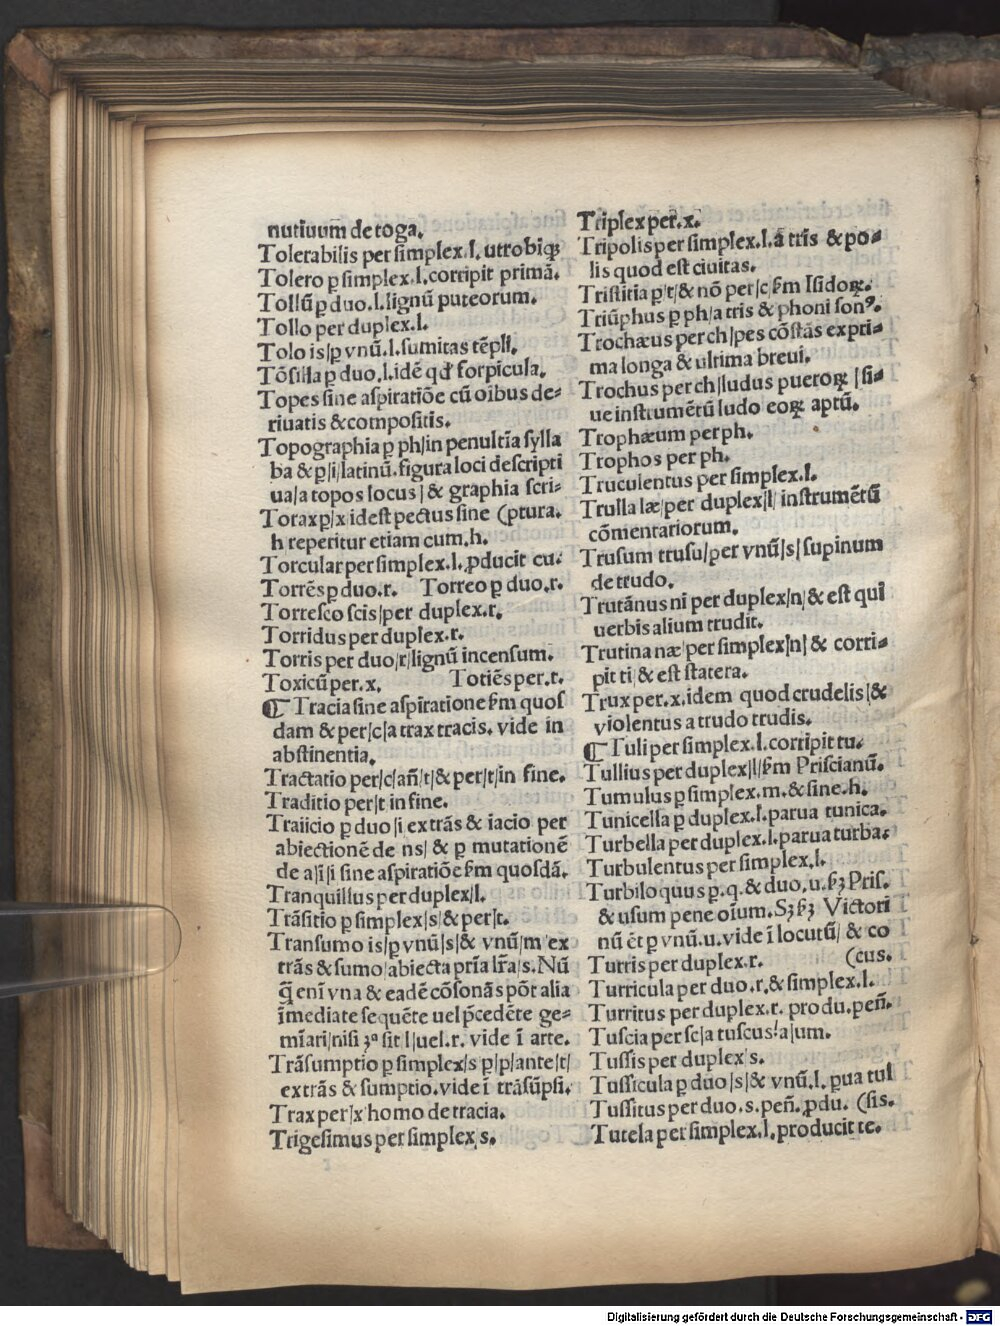 nutiuum de toga.
Tolerabilis per simplex.l. utrobiqꝫ
Tolero ꝑ simplex.l.corripit primā.
Tollū ꝑ duo.l.lignū puteorum.
Tollo per duplex.l.
Tolo is|ꝑ vnū.l.sumitas tēpli.
Tōsilla ꝑ duo.l.idē qđ forpicula.
Topes sine aspiratiōe cū oībus de⸗
riuatis & compositis.
Topographia ꝑ ph|in penultīa sylla
ba & ꝑ|i|latinū.figura loci descripti
ua|a topos locus| & graphia scri⸗
Torax ꝑ|x idest pectus sine (ptura.
h reperitur etiam cum.h.
Torcular per simplex.l.ꝓducit cu.
Torrēs ꝑ duo.r. Torreo ꝑ duo.r.
Torresco scis|per duplex.r.
Torridus per duplex.r.
Torris per duo|r|lignū incensum.
Toxicū per.x. Totiēs per.t.
¶ Tracia sine aspiratione ẜm quos
dam & per|c|a trax tracis. vide in
abstinentia.
Tractatio per|c|an̄|t|& per|t|in fine.
Traditio per|t in fine.
Traiicio ꝑ duo|i extrās & iacio per
abiectionē de ns| & ꝑ mutationē
de a|i|i sine aspiratiōe ẜm quosdā.
Tranquillus per duplex|l.
Trāsitio ꝑ simplex|s|& per|t.
Transumo is|ꝑ vnū|s|& vnū|m ex
trās & sumo|abiecta pr̄ia lr̄a|s. Nū
q̄ enī vna & eadē cōsonās pōt alia
īmediate sequēte uel p̄cedēte ge⸗
mīari|nisi ꝫª sit l|uel.r. vide ī arte.
Trāsumptio ꝑ simplex|s ꝑ|p|ante|t|
extrās & sumptio.vide ī trāsūpsi.
Trax per|x homo de tracia.
Trigesimus per simplex s.
Triplex per.x.
Tripolis per simplex.l.a tris & po⸗
lis quod est ciuitas.
Tristitia ꝑ|t|& nō per|c ẜm Isidoꝝ.
Triūphus ꝑ ph|a tris & phoni sonꝰ.
Trochæus per ch|pes cōstās expri⸗
ma longa & ultima breui.
Trochus per ch|ludus pueroꝝ|si⸗
ue instrumētū ludo eoꝝ aptū.
Trophæum per ph.
Trophos per ph.
Truculentus per simplex.l.
Trulla læ|per duplex|l| instrumētū
cōmentariorum.
Trusum trusu|per vnū|s|supinum
de trudo.
Trutānus ni per duplex|n|& est qui
uerbis alium trudit.
Trutina næ|per simplex|n|& corri⸗
pit ti|& est statera.
Trux per.x.idem quod crudelis|&
violentus a trudo trudis.
¶ Tuli per simplex.l.corripit tu.
Tullius per duplex|l|ẜm Priscianū.
Tumulus ꝑ simplex.m.& sine.h.
Tunicella ꝑ duplex.l.parua tunica.
Turbella per duplex.l.parua turba.
Turbulentus per simplex.l.
Turbiloquus ꝑ.q.& duo.u.ẜꝫ Pris.
& usum pene oīum. Sꝫ ẜꝫ Victori
nū ēt ꝑ vnū.u.vide ī locutū| & co
Turris per duplex.r. (cus.
Turricula per duo.r.& simplex.l.
Turritus per duplex.r. produ.pen̄.
Tuscia per sc|a tuscus|a|um.
Tussis per duplex s.
Tussicula ꝑ duo|s|& vnū.l. ꝑua tus
Tussitus per duo.s.pen̄.ꝓdu. (sis.
Tutela per simplex.l.producit te.
Digitalisierung gefördert durch die Deutsche Forschungsgemeinschaft - DFG